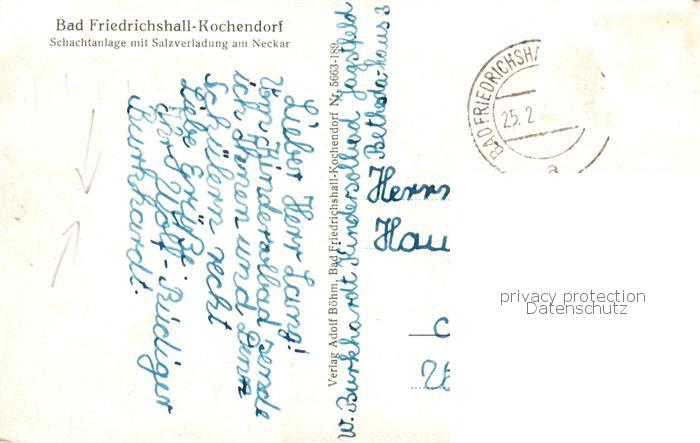 Bad Friedrichshall-Kochendorf
Schachtanlage mit Salzverladung am Neckar
Lieber Herr Lang!
Vom Kindersolbad sende
ich Ihnen und Ihren
Schülern recht
liebe Grüße.
Ihr Wolf-Rüdiger
Burkhardt.
Verlag Adolf Böhm, Bad Friedrichshall-Kochendorf Nr. 5663-189
W. Burkhardt Kindersolbad Jagstfeld
Bethesda-Haus 3
BAD FRIEDRICHSHA
25. 2
a
Herrn
Hau
privacy protection
Datenschutz